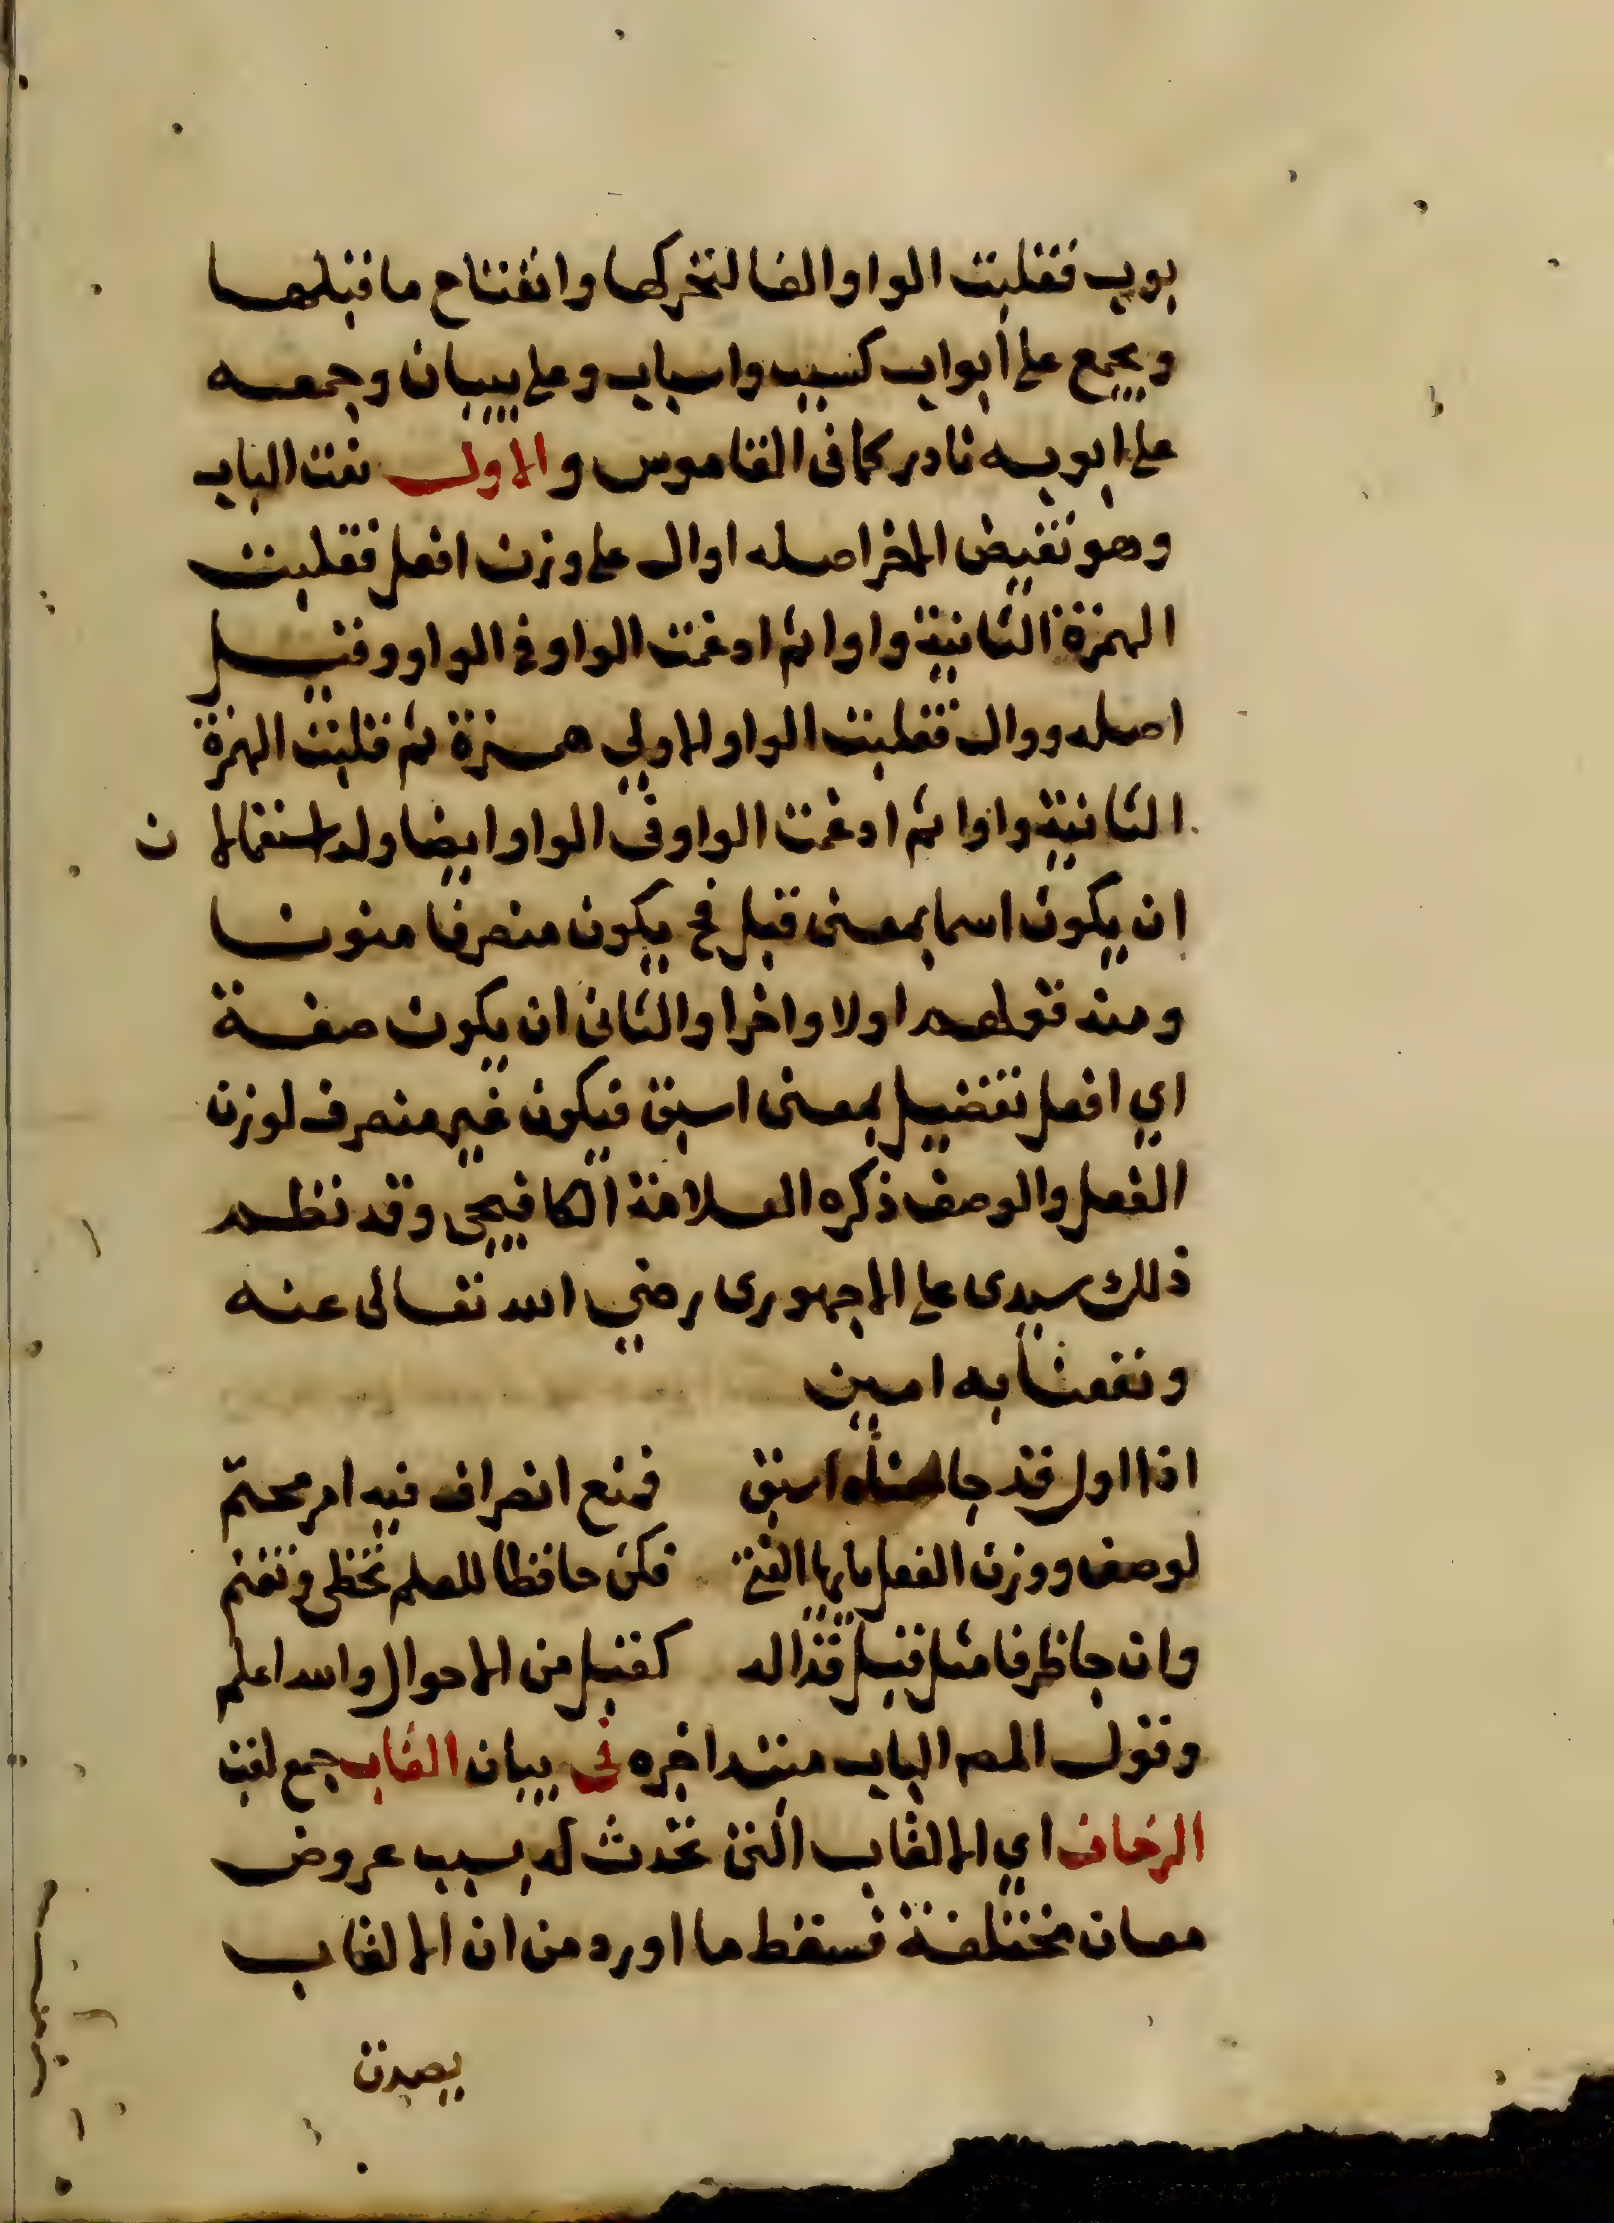 بوب فقلبت الواو الفا لتحركها وانفتاح ما قبلها
ويجمع على أبواب كسبب واسباب وعلى بيبان وجمعه
على ابوبه نادر كما في القاموس والاول نعت الباب
وهو نقيض الاخر اصله اوال على وزن افعل فقلبت
الهمزة الثانية واوا ثم ادغمت الواو في الواو وقيل
اصله ووال فقلبت الواو الاولي همزة ثم قلبت الهمزة
الثانية واوا ثم ادغمت الواو في الواو ايضا وله استعمالان
ان يكون اسما بمعنى قبل فح يكون منصرفا منونا
ومنه قولهم اولا واخرا والثاني ان يكون صفة
اي افعل تفضيل بمعنى اسبق فيكون غير منصرف لوزن
الفعل والوصف ذكره العلامة الكافيجي وقد نظم
ذلك سيدى على الاجهورى رضي الله تعالى عنه
ونفعنا به امين
اذا اول قد جا معناه اسبق فمنع انصراف فيه امر محتم
لوصف ووزن الفعل يايها الفتى فكن حافظا للعلم تحظى وتغنم
وان جا ظرفا مثل قبل فذا له كقبل من الاحوال والله اعلم
وقول المص الباب مبتدا خبره في بيان القاب جمع لقب
الزحاف اي الالقاب التي تحدث له بسبب عروض
معان مختلفة فسقط ما اورد من ان الالقاب
يصدق